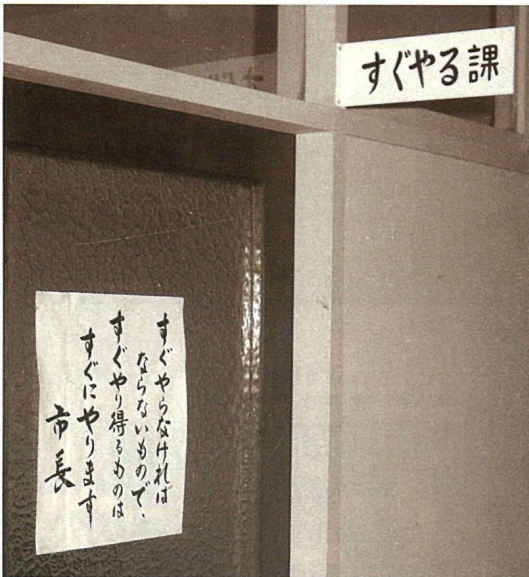 すぐやる課
すぐやらなければ
ならないもので、
すぐやり得るものは
すぐにやります
市長